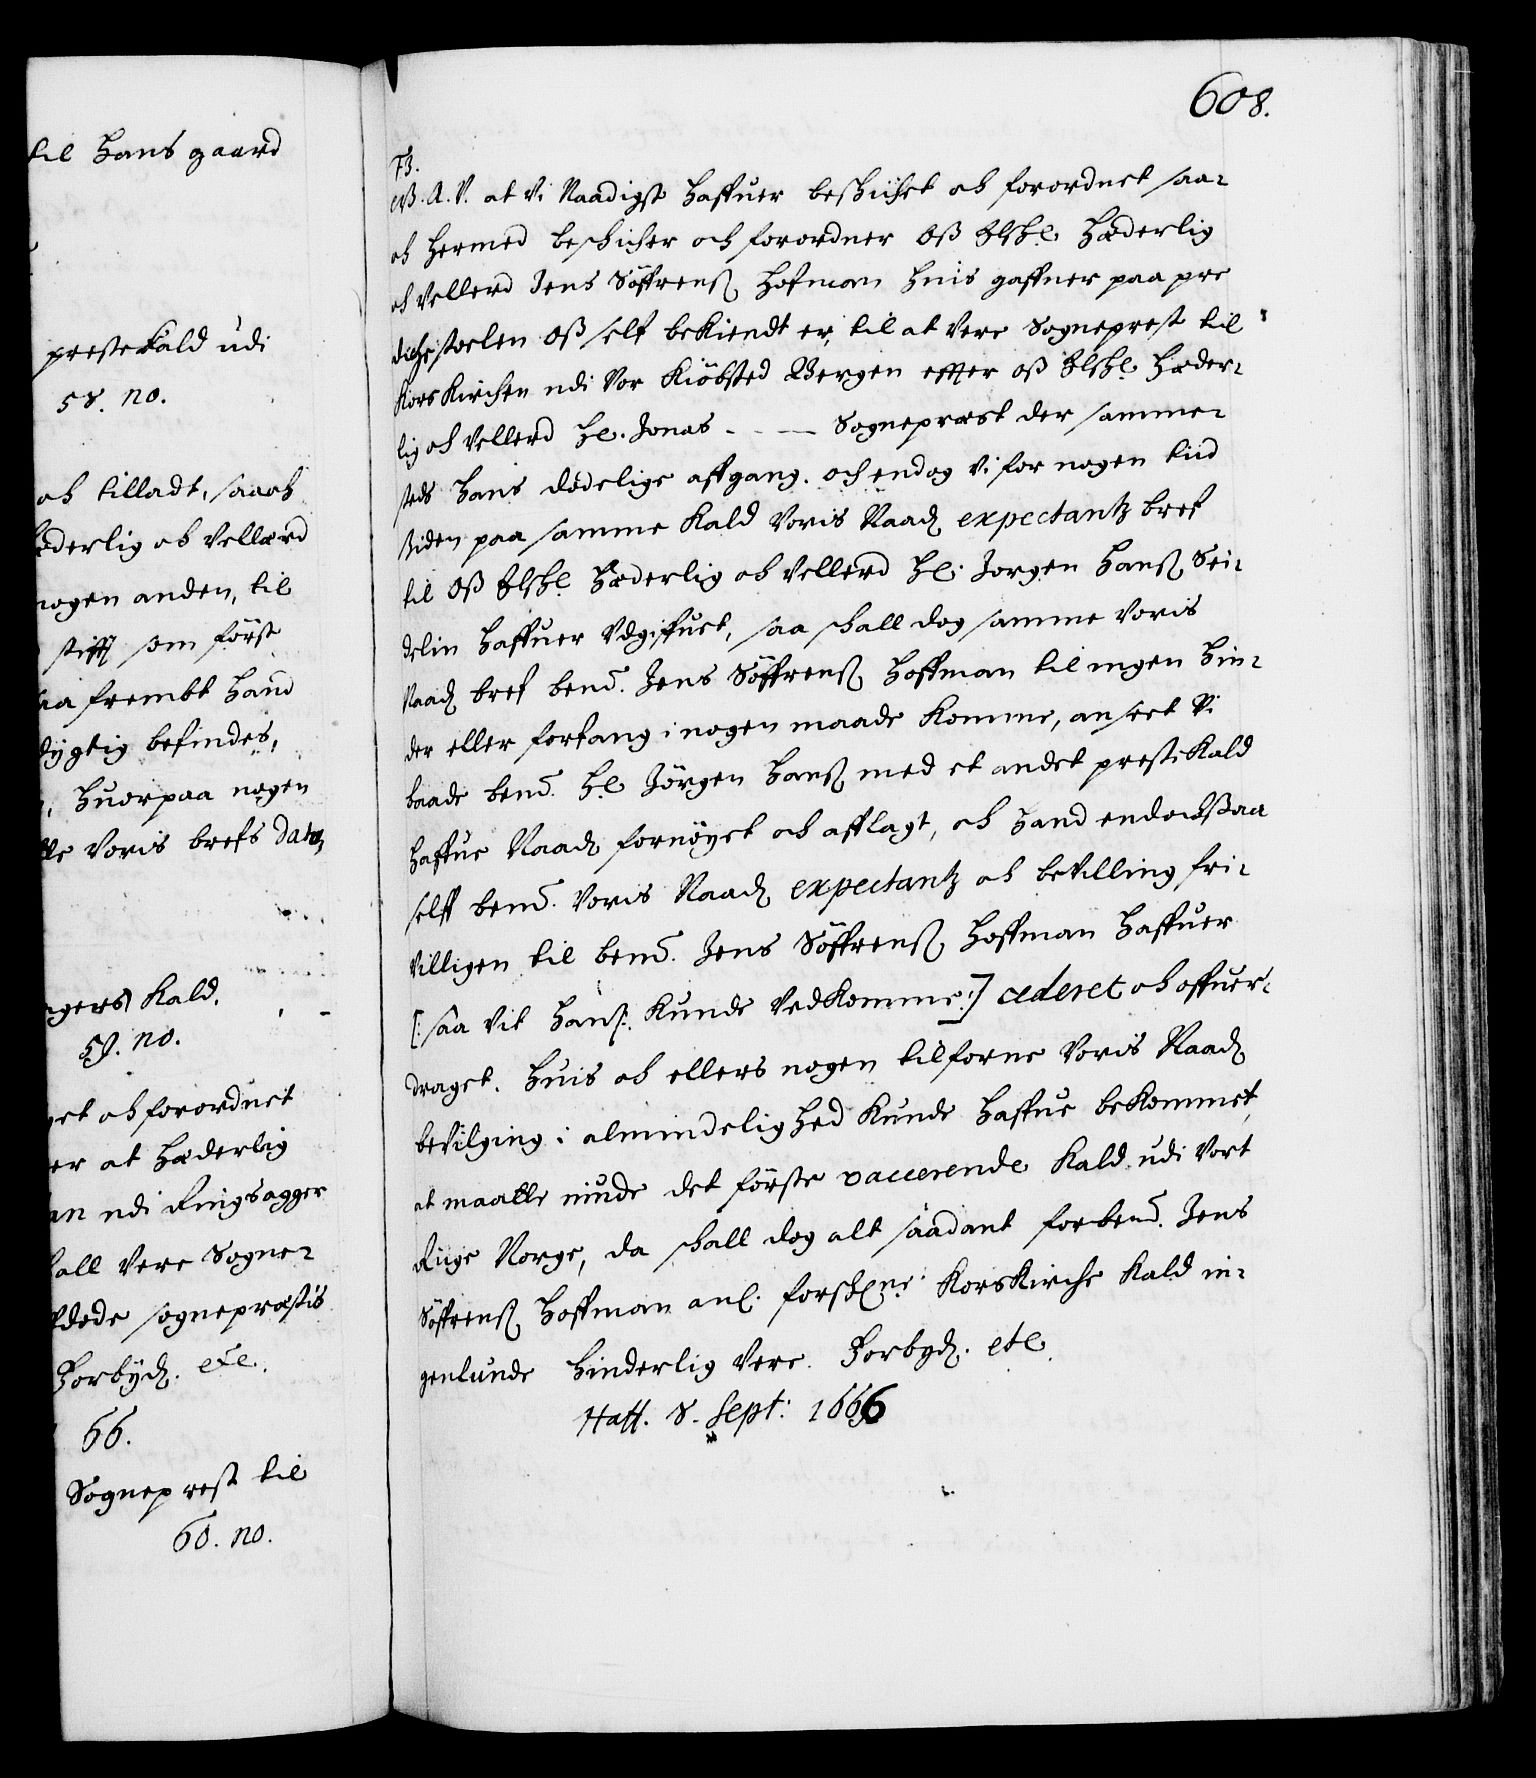 til Hans gaard
prestekald udi
58. no.
och tilladt, saa och
ederlig och Vellærd
nogen anden, til
stifft som först
aa frembt Hand
dygtig befindes,
Huorpaa nogen
lle Voris brefs dato,
ngers Kald.
59. no.
get och forordnet
er at Hæderlig
an udi Ringsagger
all Vere Sogne-
fdøde sognepræstis
Forbyd. etc.
66.
Sogneprest til
60. no.
608.
F3.
G. A. V. at Vi Naadigst Haffuer beskichet och forordnet saa-
och Hermed beschicher och forordner Oß Elskel. Hæderlig
och Vellerd Jens Söffrenß. Hofman Huis gaffuer paa pre
dichestoelen Oß self bekiendt er, til at Vere Sogneprest til
Kors Kirchen udi Vor Kiöbsted Bergen effter oß Elskel. Hæder-
lig och Vellerd Hr. Jonas - - - Sognepræst der samme-
steds Hans dødelige affgang. och endog Vi for nogen tiid
siden paa samme Kald Voris Naad. expectantz bref
til Oß Elskel. Hæderlig och Vellerd Hr. Jorgen Hanß. Sei-
delin Haffuer Udgiffuet, saa schall dog samme Voris
Naad. bref bemd. Jens Söffrenß. Hoffman til ingen Hin-
der eller forfang i nogen maade Komme, anseet Vi
baade bemd. Hr. Jörgen Hanß. med et andet prestekald
Haffue Naad. fornöyet och afflagt, och Hand endochsaa
selff bemd. Voris Naad. expectantz och bevilling fri-
Villigen til bemd. Jens Söffrenß. Hoffman Haffuer
[: saa Vit Hans: Kunde VedKomme :] cederet och offuer-
draget. Huis och ellers nogen tilforne Voris Naad.
bevilging i almindelighed Kunde Haffue beKommet,
at maatte niude det förste vaccerende Kald udi Vort
Riige Norge, da schall dog alt saadant forbemd. Jens
Söffrenß. Hoffman anl. forskrne: KorsKirche Kald in-
genlunde Hinderlig Vere. Forbyd. etc.
Haff. 8. Sept: 1666